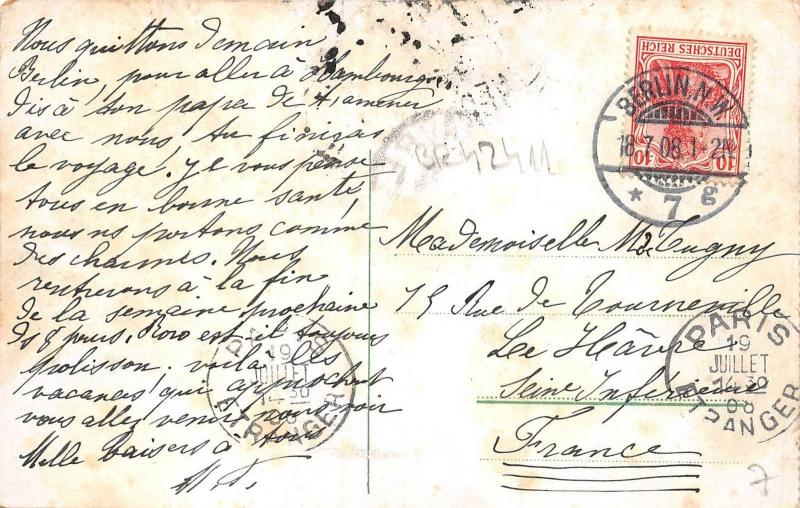 Nous quittons demain
Berlin, pour aller à Hambourg,
dis à ton papa de t'amener
avec nous, tu finiras
le voyage. je vous pense
tous en bonne santé,
nous ns portons comme
des charmes. Nous
rentrerons à la fin
de la semaine prochaine
ds 8 jours, Roro est il toujours
polisson. voilà les
vacances qui approchent
vous allez venir nous voir
Mille baisers à tous
DEUTSCHES REICH
10 10
BERLIN. N.W.
18.7.08.1-2N.
* 7 g
BR42411
Mademoiselle M. Tugny
75 Rue de Tourneville
Le Hâvre
Seine Inférieure
France
PARIS
19
JUILLET
14 30
08
ETRANGER
PARIS
19
JUILLET
14 30
08
ETRANGER
7